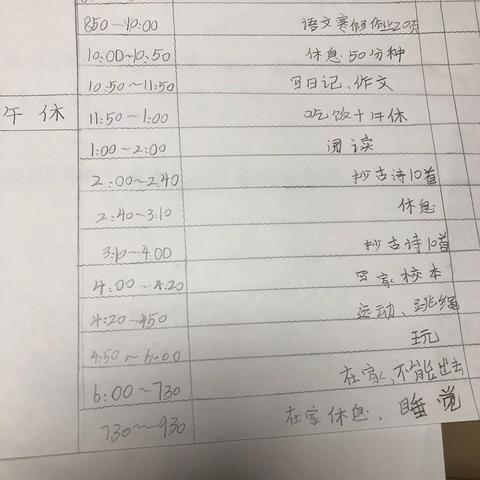 850~10:00 语文寒假作业20页
10:00~10:50 休息50分种
10:50~11:50 写日记、作文
午休 11:50~1:00 吃饭+午休
1:00~2:00 阅读
2:00~2:40 抄古诗10首
2:40~3:10 休息
3:10~4:00 抄古诗10首
4:00~4:20 回家校本
4:20~450 运动、跳绳
4:50~6:00 玩
6:00~730 在家,不能出去
730~930 在家休息、睡觉